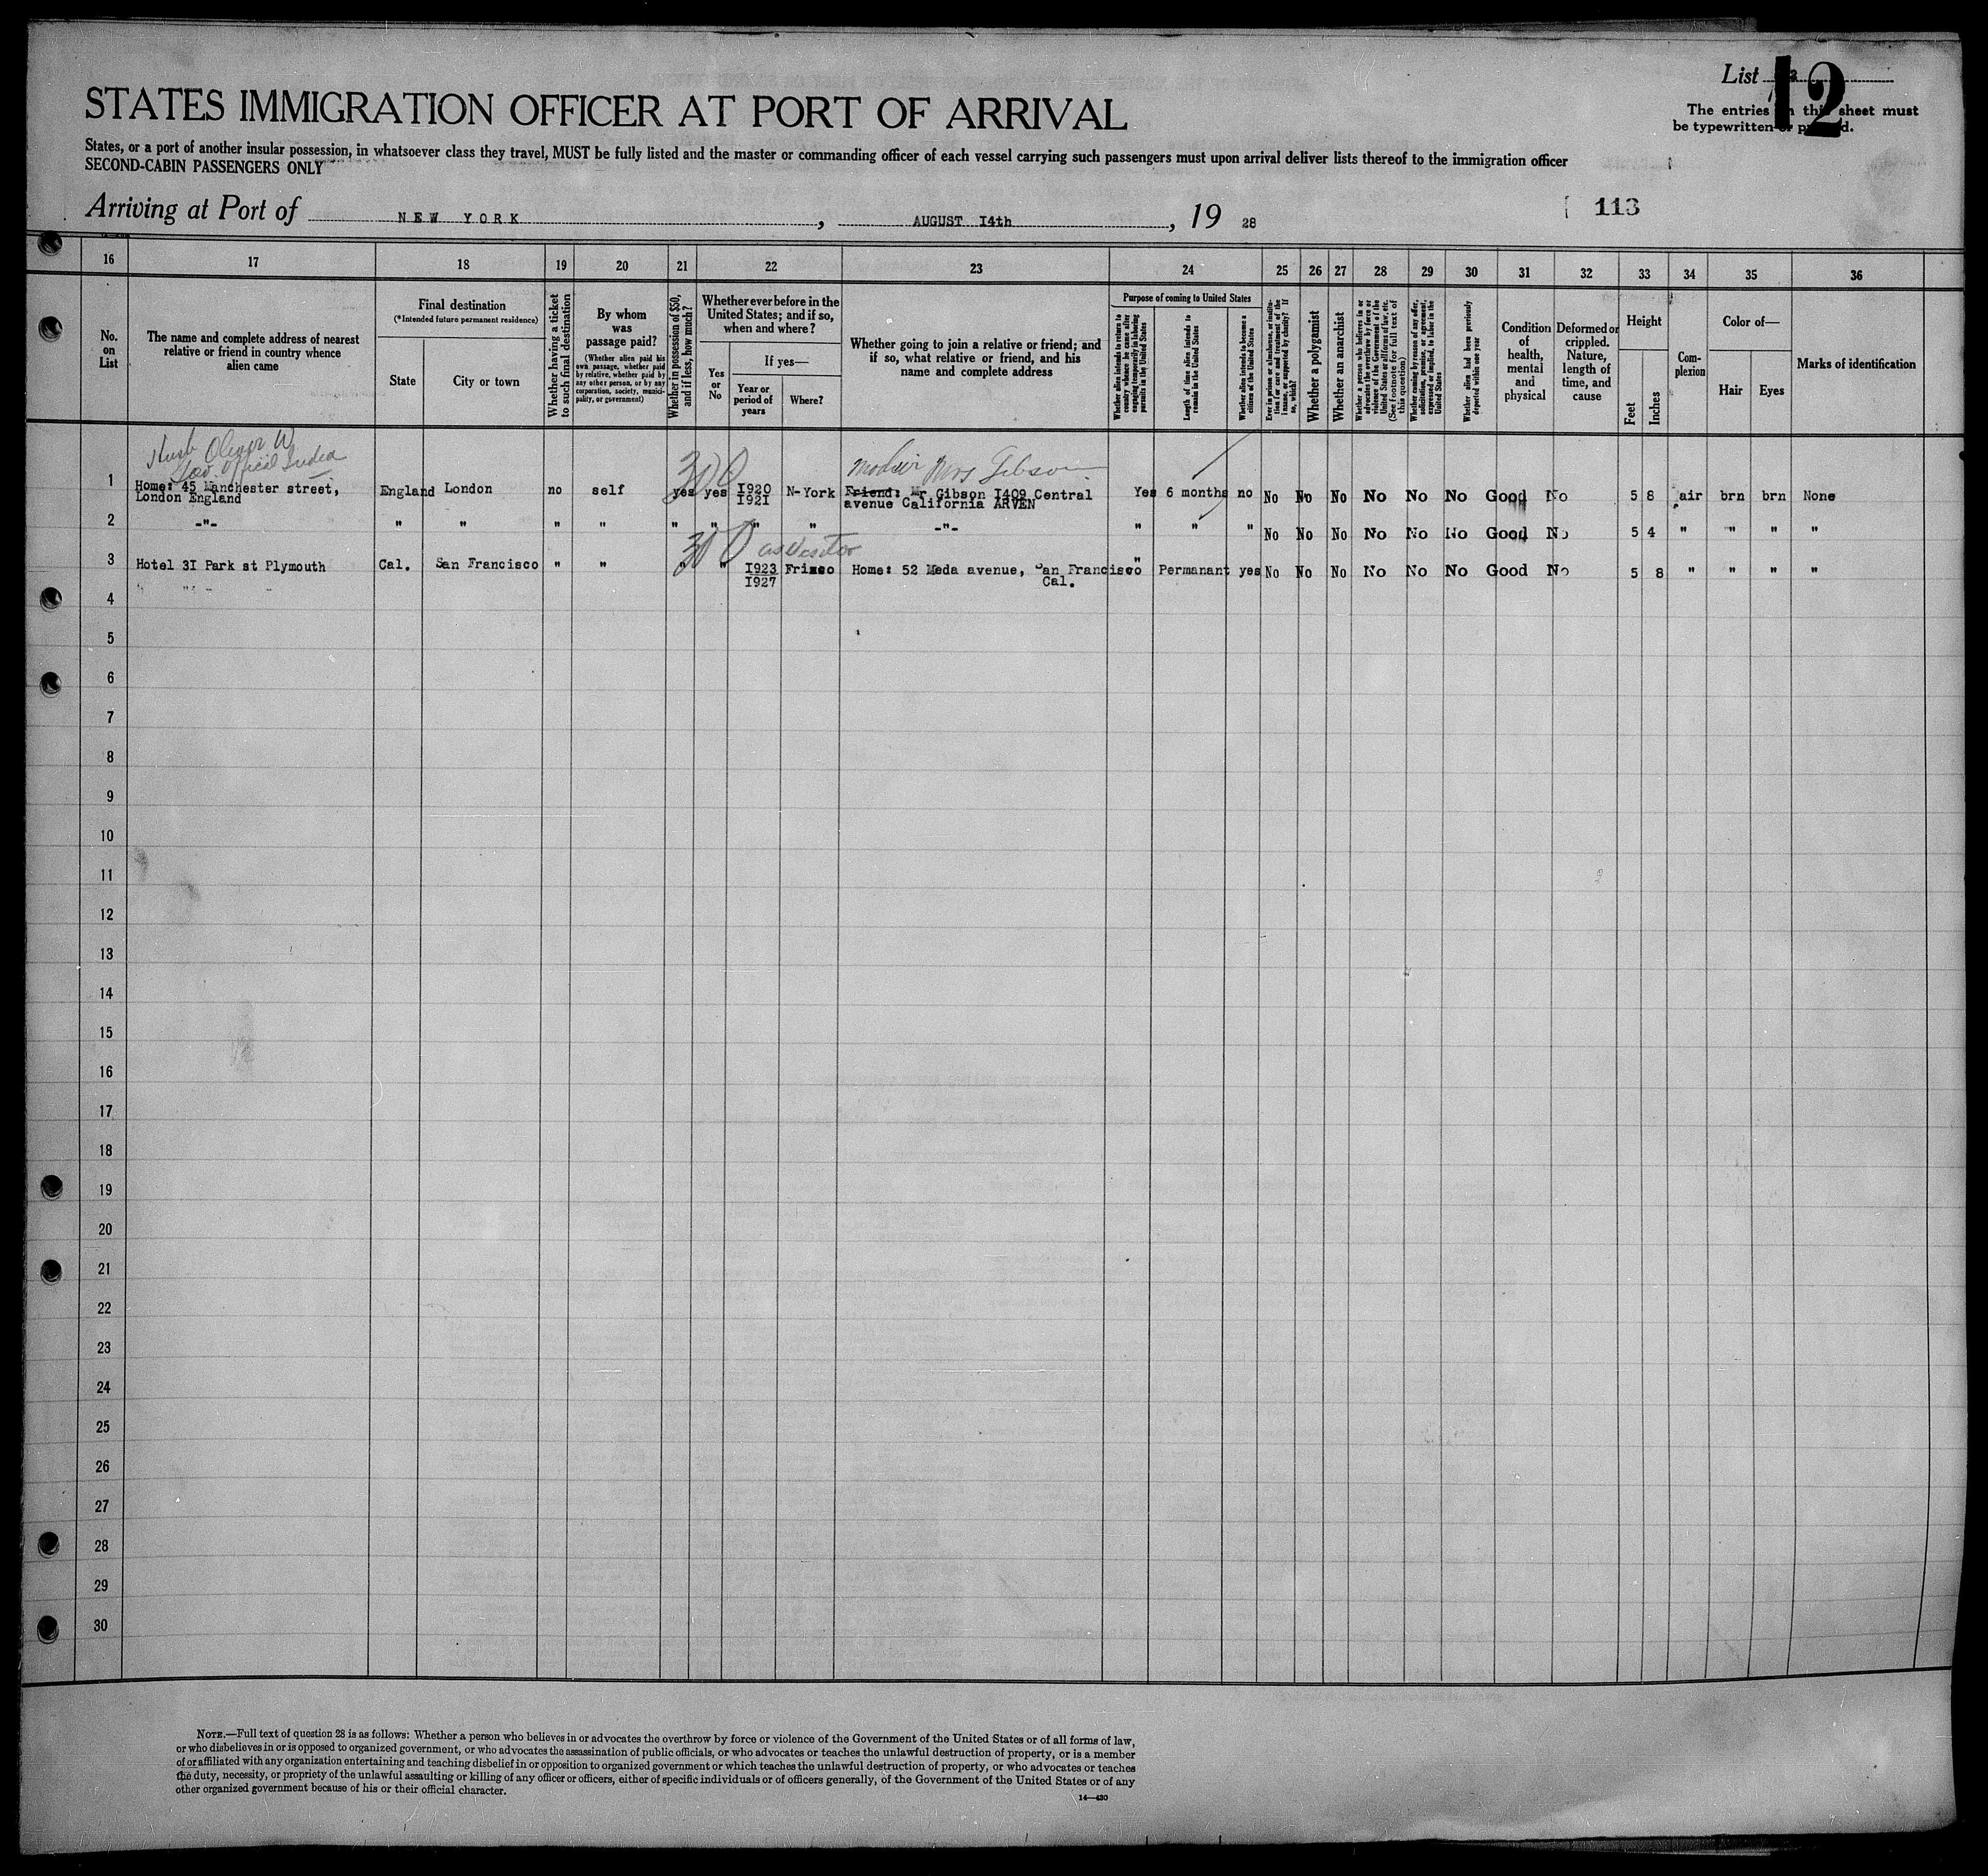 List
12
STATES IMMIGRATION OFFICER AT PORT OF ARRIVAL
The entries on this sheet must
be typewritten or printed.
States, or a port of another insular possession, in whatsoever class they travel, MUST be fully listed and the master or commanding officer of each vessel carrying such passengers must upon arrival deliver lists thereof to the immigration officer
SECOND-CABIN PASSENGERS ONLY
Arriving at Port of NEW YORK, AUGUST I4th, 19 28
113
16 17 18 19 20 21 22 23 24 25 26 27 28 29 30 31 32 33 34 35 36
No. on List
The name and complete address of nearest relative or friend in country whence alien came
Final destination
(*Intended future permanent residence)
State
City or town
Whether having a ticket to such final destination
By whom was passage paid?
(Whether alien paid his own passage, whether paid by relative, whether paid by any other person, or by any corporation, society, municipality, or government)
Whether in possession of $50, and if less, how much?
Whether ever before in the United States; and if so, when and where?
Yes or No
If yes—
Year or period of years
Where?
Whether going to join a relative or friend; and if so, what relative or friend, and his name and complete address
Purpose of coming to United States
Whether alien intends to return to country whence he came after engaging temporarily in laboring pursuits in the United States
Length of time alien intends to remain in the United States
Whether alien intends to become a citizen of the United States
Ever in prison or almshouse, or institution for care and treatment of the insane, or supported by charity? If so, which?
Whether a polygamist
Whether an anarchist
Whether a person who believes in or advocates the overthrow by force or violence of the Government of the United States or all forms of law, etc. (See footnote for full text of this question)
Whether coming by reason of any offer, solicitation, promise, or agreement, expressed or implied, to labor in the United States
Whether alien had been previously deported within one year
Condition of health, mental and physical
Deformed or crippled. Nature, length of time, and cause
Height
Feet
Inches
Complexion
Color of—
Hair
Eyes
Marks of identification
Oliver W
India
300
Mrs Gibson
1 Home: 45 Manchester street, England London no self yes yes I920 N-York Friend: Mr Gibson I409 Central Yes 6 months no No No No No No No Good No 5 8 air brn brn None
London England I921 avenue California ARVEN
2 -"- " " " " " " " " -"- " " " No No No No No No Good No 5 4 " " " "
300 as visitor
3 Hotel 3I Park st Plymouth Cal. San Francisco " " " " I923 Frisco Home: 52 Meda avenue, San Francisco " Permanant yes No No No No No No Good No 5 8 " " " "
I927 Cal.
4
5
6
7
8
9
10
11
12
13
14
15
16
17
18
19
20
21
22
23
24
25
26
27
28
29
30
NOTE.—Full text of question 28 is as follows: Whether a person who believes in or advocates the overthrow by force or violence of the Government of the United States or of all forms of law,
or who disbelieves in or is opposed to organized government, or who advocates the assassination of public officials, or who advocates or teaches the unlawful destruction of property, or is a member
of or affiliated with any organization entertaining and teaching disbelief in or opposition to organized government or which teaches the unlawful destruction of property, or who advocates or teaches
the duty, necessity, or propriety of the unlawful assaulting or killing of any officer or officers, either of specific individuals or of officers generally, of the Government of the United States or of any
other organized government because of his or their official character.
14—430